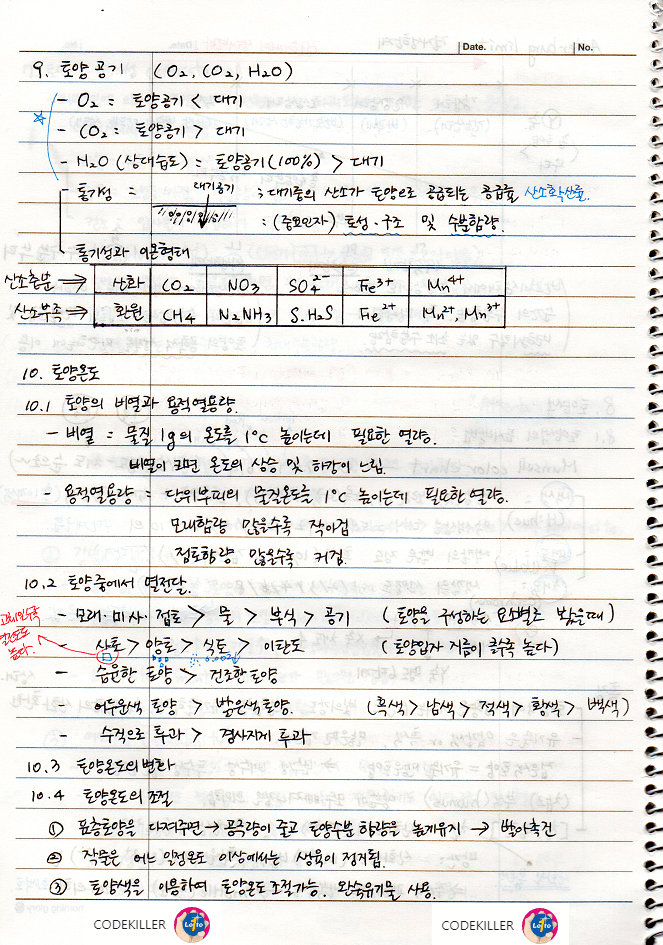 Date. No.
9. 토양공기 (O2, CO2, H2O)
- O2 = 토양공기 < 대기
- CO2 = 토양공기 > 대기
- H2O (상대습도) = 토양공기(100%) > 대기
- 통기성 = 대기공기 ; 대기중의 산소가 토양으로 공급되는 공급율 산소확산률.
: (중요인자) 토성.구조 및 수분함량.
통기성과 이온형태
산소충분 → 산화 CO2 NO3 SO4^2- Fe3+ Mn4+
산소부족 → 환원 CH4 N2NH3 S.H2S Fe2+ Mn2+, Mn3+
10. 토양온도
10.1 토양의 비열과 용적열용량.
- 비열 = 물질 1g의 온도를 1°C 높이는데 필요한 열량.
비열이 크면 온도의 상승 및 하강이 느림.
- 용적열용량 = 단위부피의 물질온도를 1°C 높이는데 필요한 열량.
모래함량 많을수록 작아짐
점토함량 많을수록 커짐.
10.2 토양중에서 열전달.
- 모래·미사·점토 > 물 > 부식 > 공기 (토양을 구성하는 요소별로 봤을때)
높다.
- 사토 > 양토 > 식토 > 이탄토 (토양입자 지름이 클수록 높다)
- 습윤한 토양 > 건조한 토양
- 어두운색 토양 > 밝은색토양. (흑색 > 남색 > 적색 > 황색 > 백색)
- 수직으로 투과 > 경사지게 투과
10.3 토양온도의 변화
10.4 토양온도의 조절
① 표층토양을 다져주면 → 공극량이 줄고 토양수분 함량을 높게유지 → 발아촉진
② 작물은 어느 일정온도 이상에서는 생육이 정지됨.
③ 토양색을 이용하여 토양온도 조절가능. 완숙유기물 사용.
CODEKILLER Lotto CODEKILLER Lotto